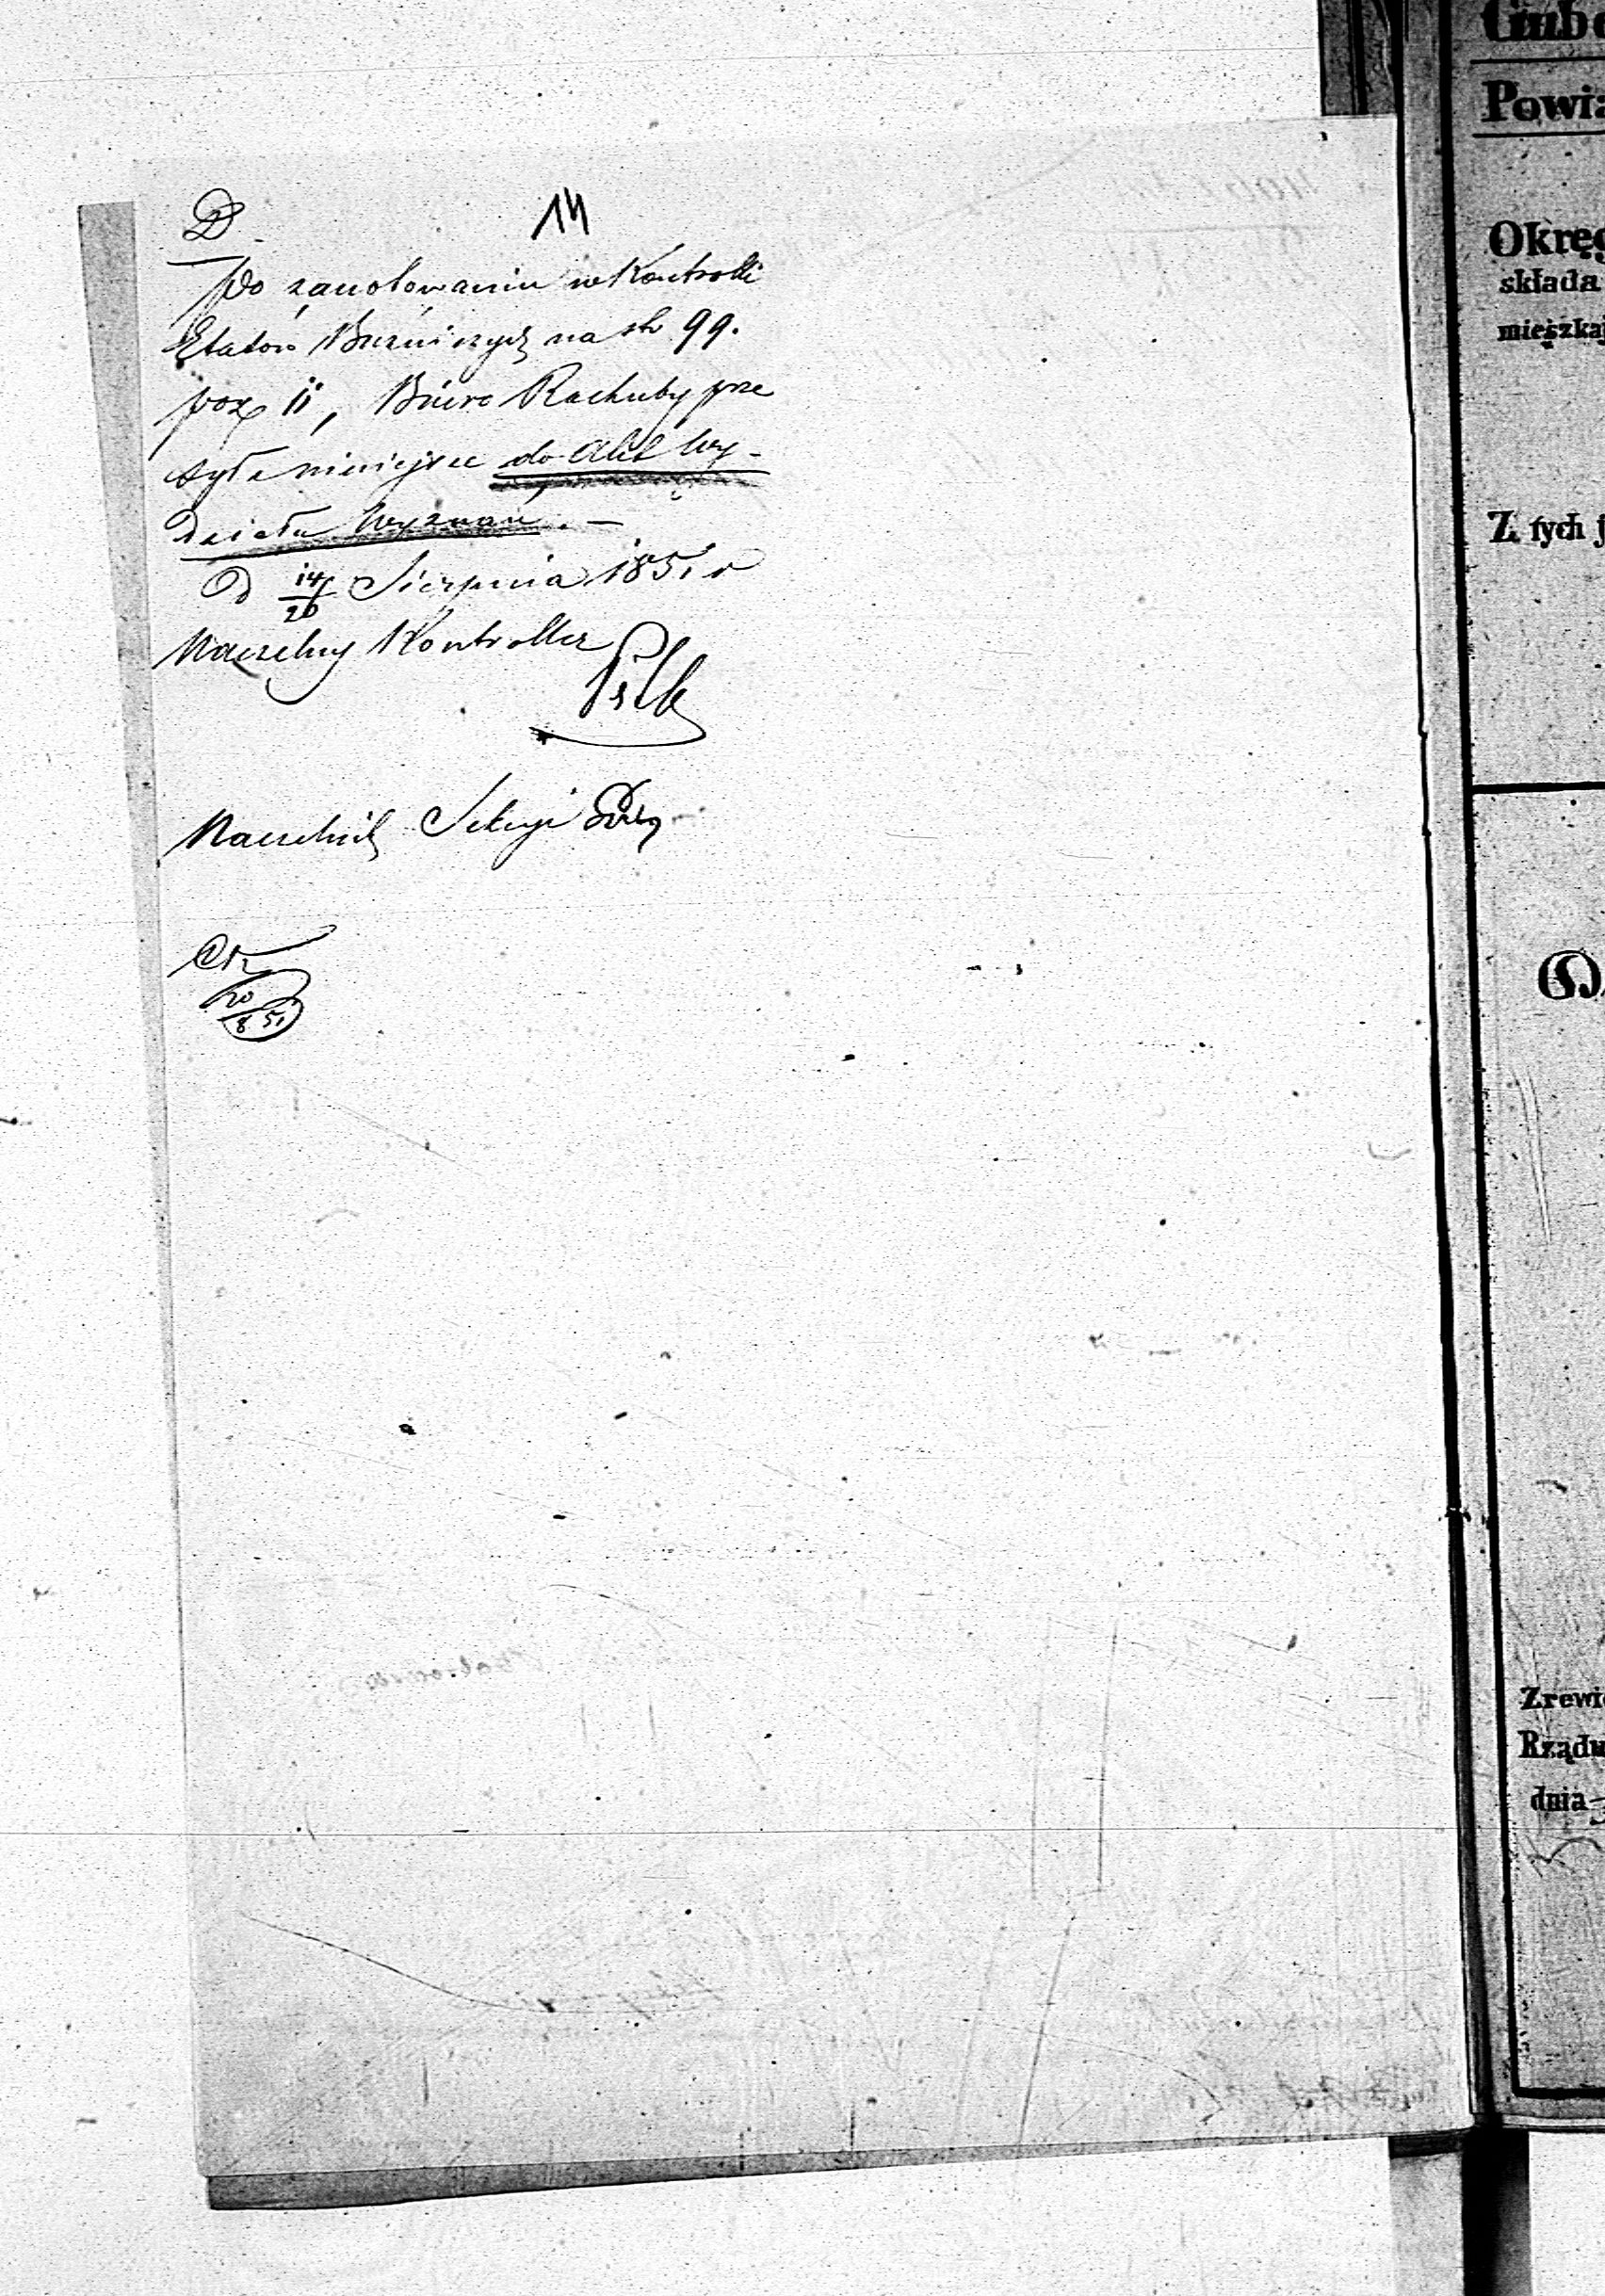 D.
14
Po zanotowaniu w Kontrolli
Etatów Bużniczych na str 99.
poz 11, Biuro Rachuby prze
syła niniejsze do Akt Wy-
działu Wyznań. —
D 14/26 Sierpnia 1851 r
Naczelny Kontroller
Naczelnik Sekcyi
20
8 51
Gube
Powia
Okręg
składa
mieszkaj
Z tych j
Zrewid
Rządu
dnia